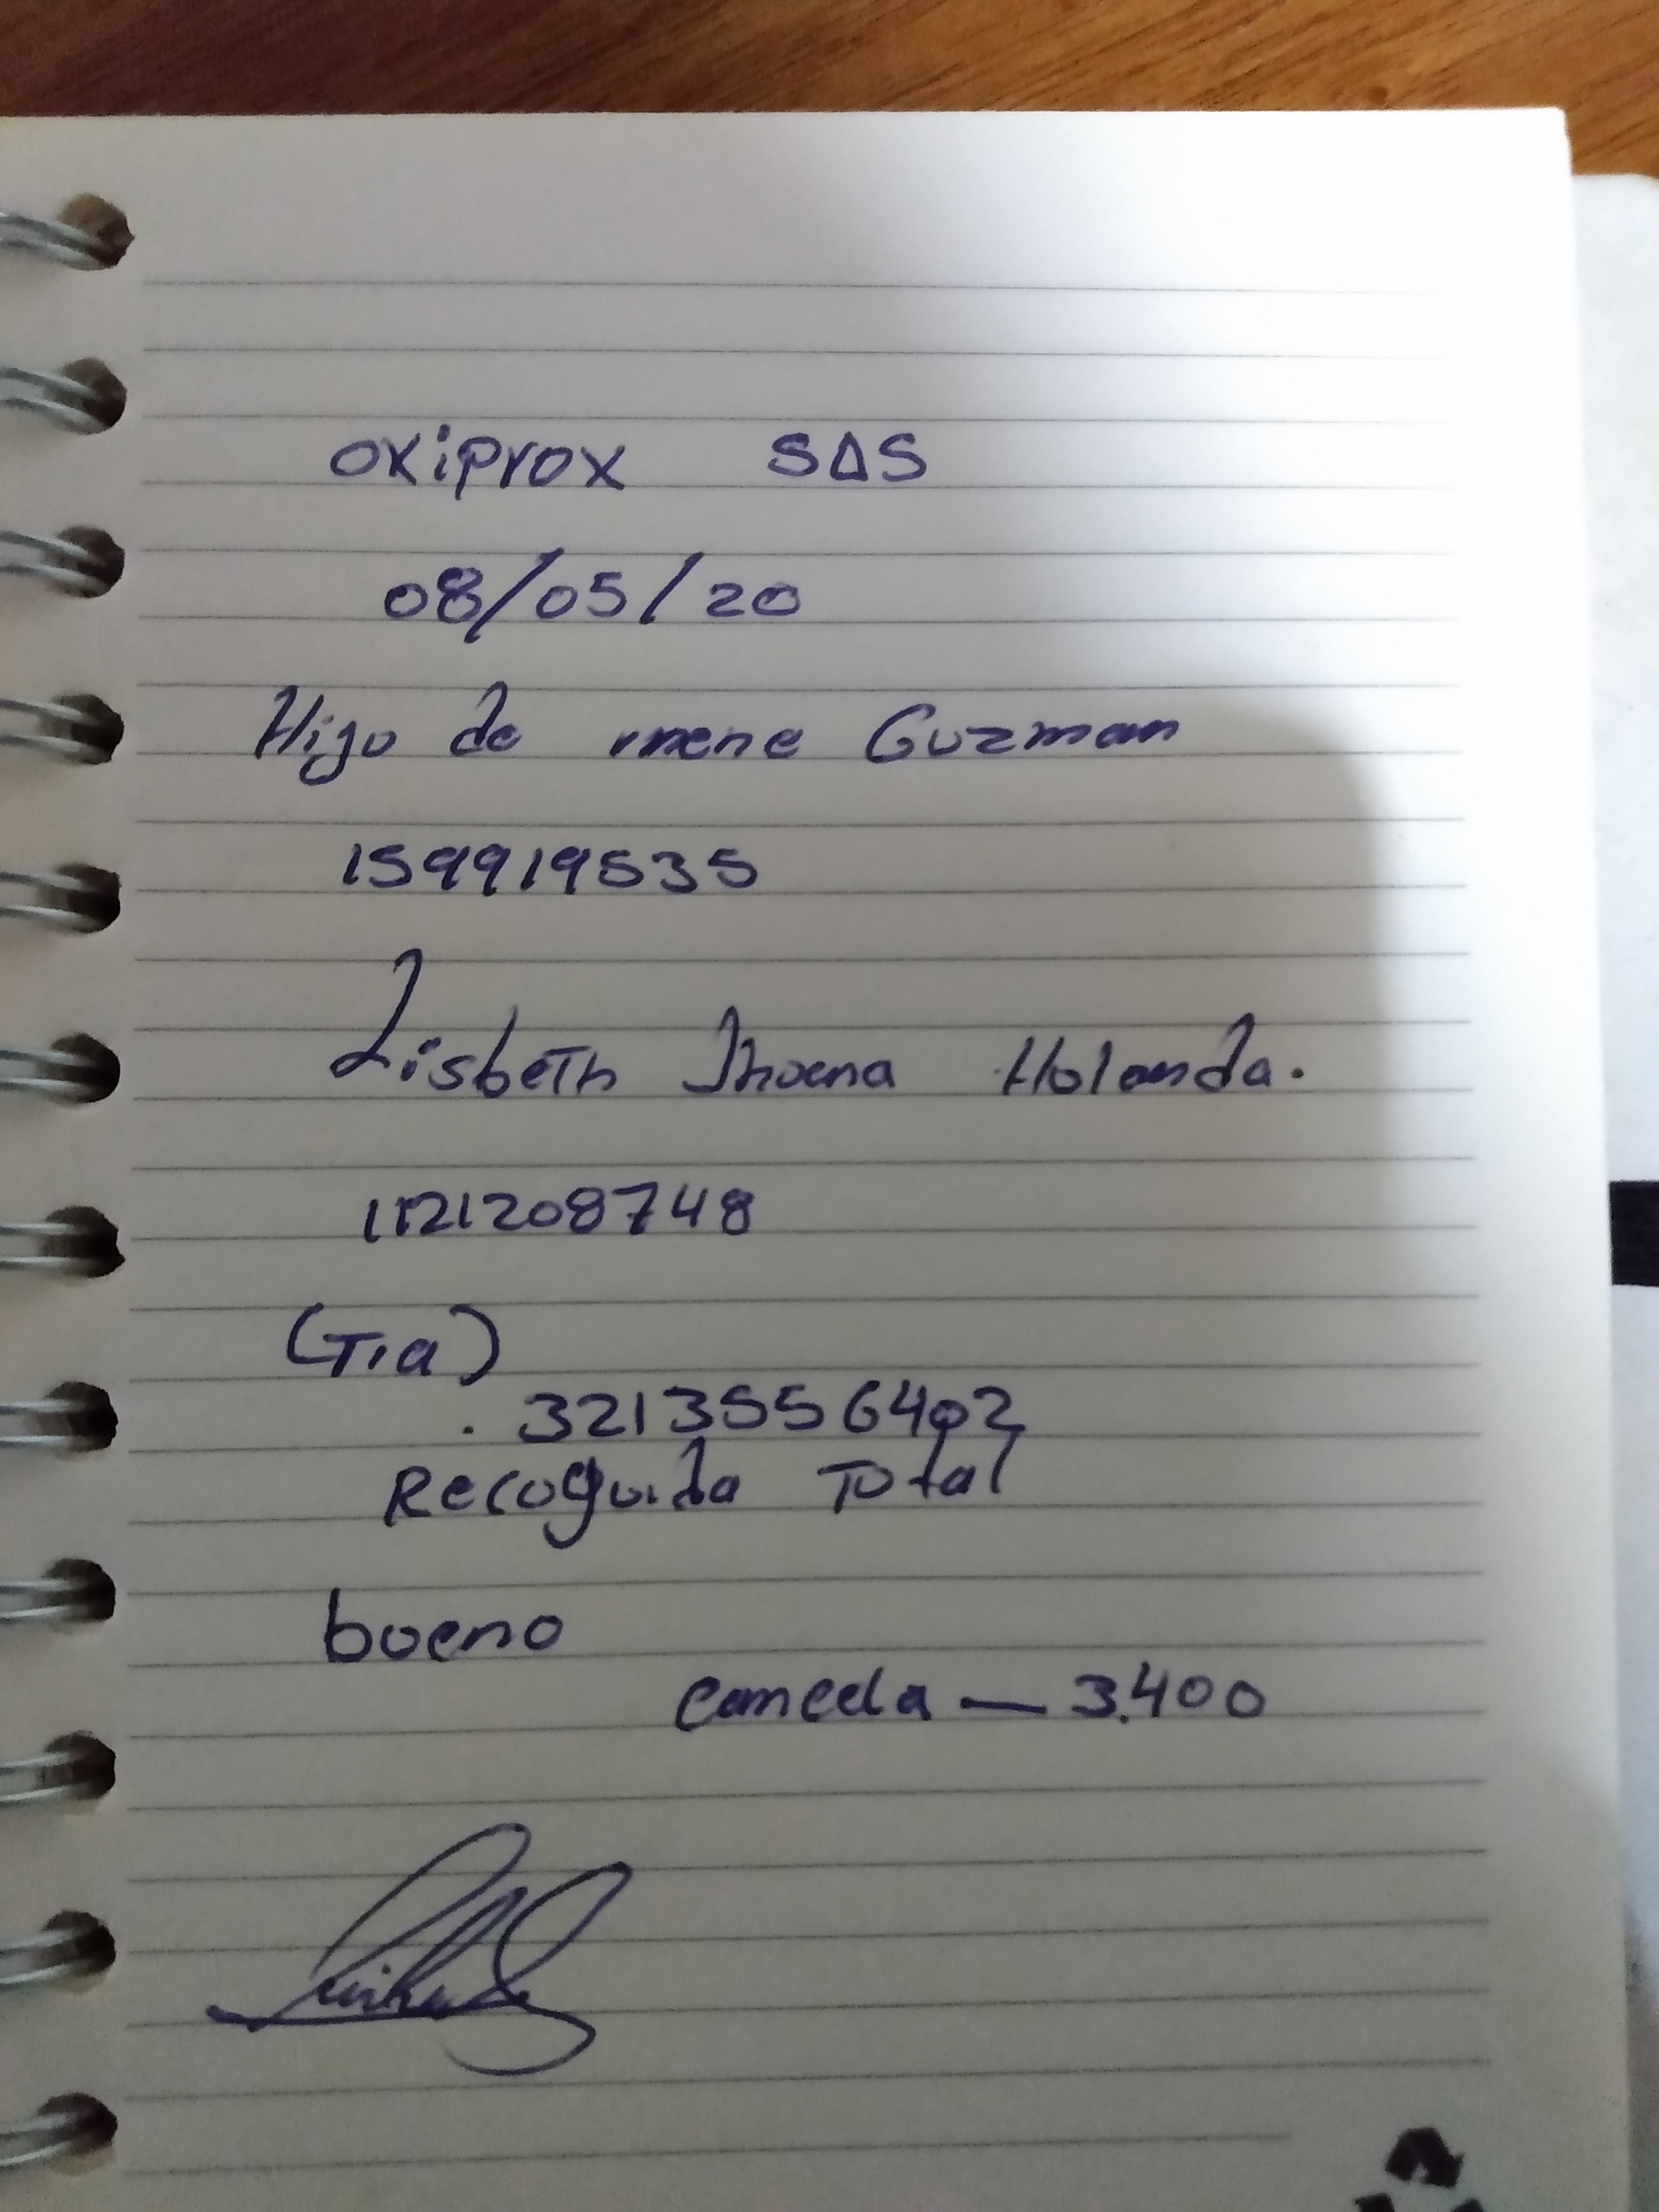 oxiprox SAS
08/05/20
Hijo de mene Guzman
159919535
Lisbeth Jhoana Holanda.
1121208748
(Tia)
. 3213556402
Recoguida Total
bueno
cancela — 3.400